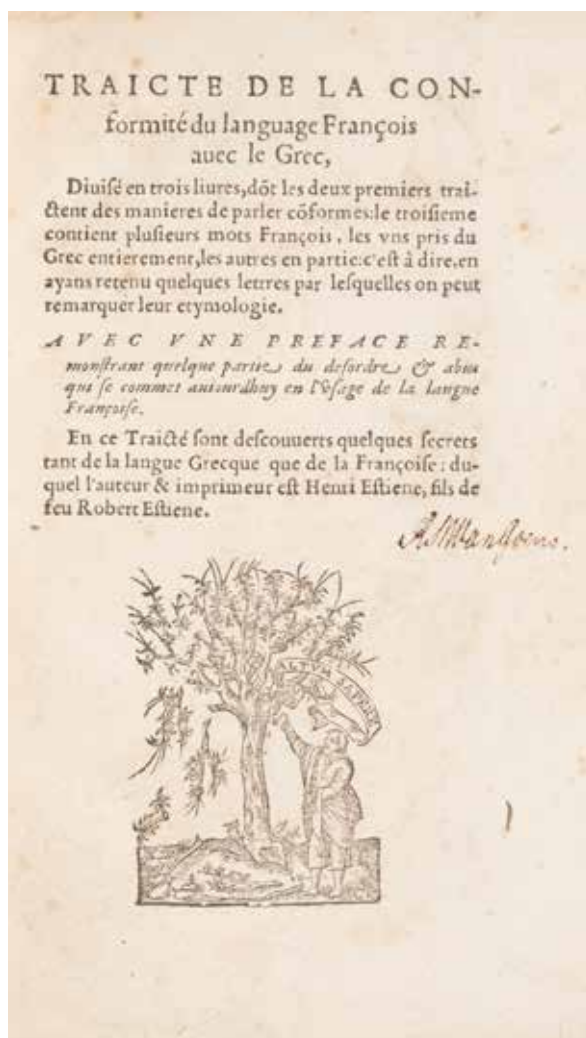 TRAICTE DE LA CON-
formité du language François
auec le Grec,
Diuisé en trois liures, dõt les deux premiers trai-
ctent des manieres de parler cõformes: le troisieme
contient plusieurs mots François, les vns pris du
Grec entierement, les autres en partie: c'est à dire, en
ayans retenu quelques lettres par lesquelles on peut
remarquer leur etymologie.
AVEC VNE PREFACE RE-
monstrant quelque partie du desordre & abus
qui se commet auiourdhuy en l'vsage de la langue
Françoise.
En ce Traicté sont descouuerts quelques secrets
tant de la langue Grecque que de la Françoise: du-
quel l'auteur & imprimeur est Henri Estiene, fils de
feu Robert Estiene.
ALTVM SAPERE